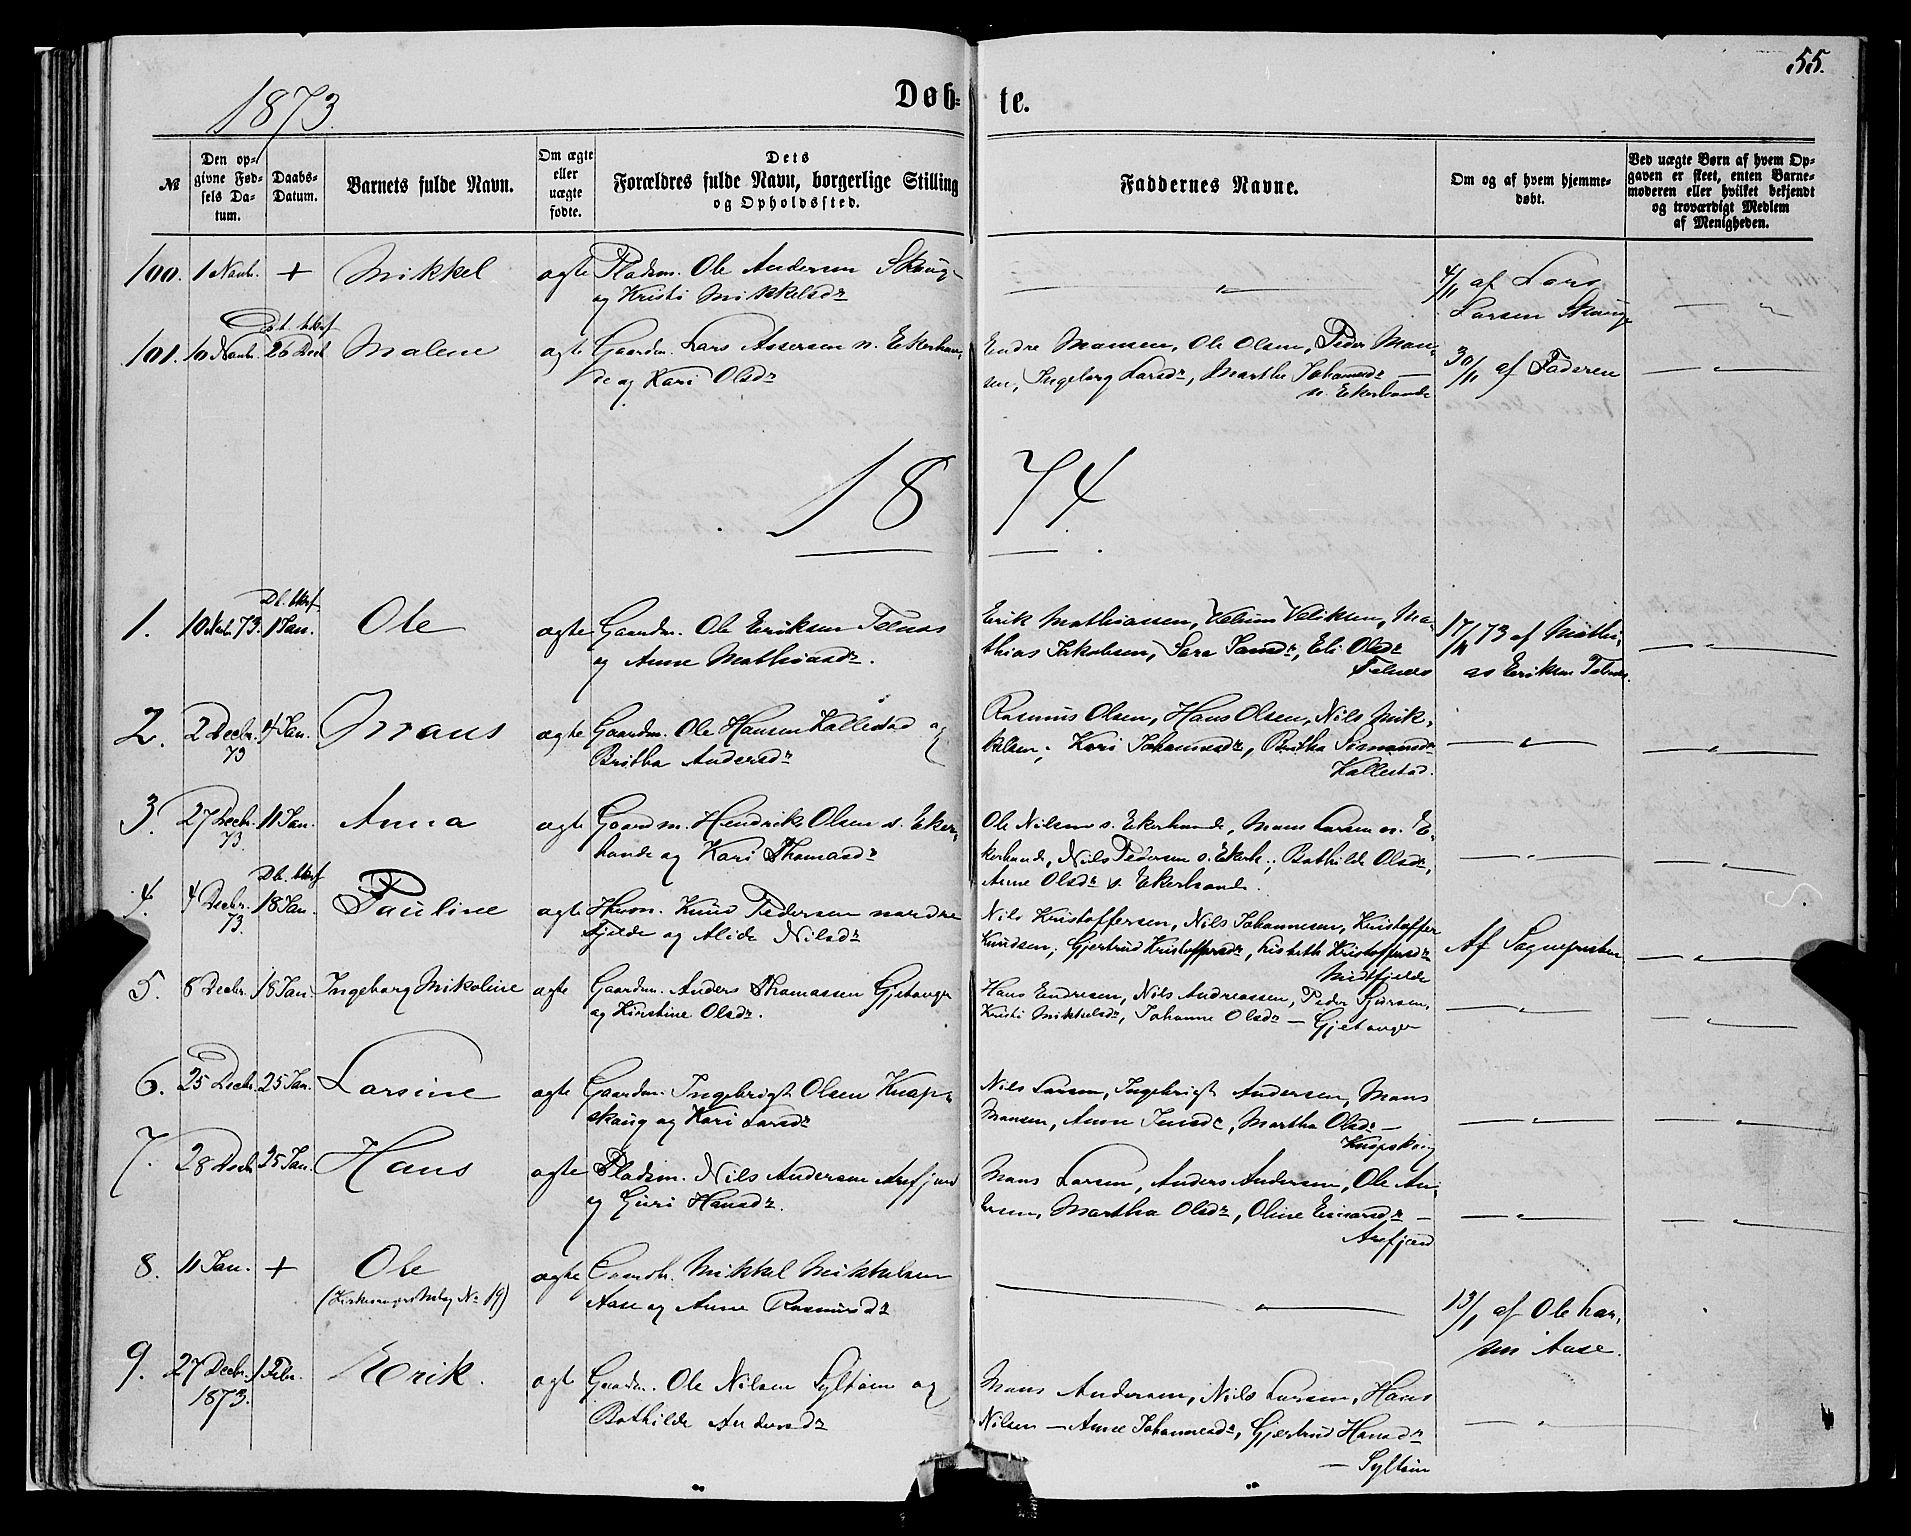 55.
1873.
Døb-
te.
№
Den op-
givne Fød-
sels Da-
tum.
Daabs-
Datum.
Barnets fulde Navn.
Om ægte
eller
uægte
fødte.
Dets
Forældres fulde Navn, borgerlige Stilling
og Opholdssted.
Faddernes Navne.
Om og af hvem hjemme-
døbt.
Ved uægte Børn af hvem Op-
gaven er skeet, enten Barne-
moderen eller hvilket bekjendt
og troværdigt Medlem
af Menigheden.
100. 1 Novb. + Mikkel ægte Pladsm. Ole Andersen Skaug
og Kristi Mikkelsdr
4/11 af Lars
Larsen Skaug
101. 10 Novb. 26 Decb Malene ægte Gaardm. Lars Assersen n. Ekerhov-
de og Kari Olsdr
Endre Monsen, Ole Olsen, Peder Mon-
sen, Ingeborg Larsdr, Marthe Johannesdr —
n. Ekerhovde
30/11 af Faderen
1874.
1. 10 Novb. 73. 1 Jan. Ole ægte Gaardm. Ole Eriksen Telnes
og Anne Mathiasdr.
Erik Mathiassen, Velliksen, Ma-
thias Jakobsen, Sara Eli Olsdr
Telnes
17/11 73 af Mathi-
as Eriksen Telnes.
2. 2 Decbr. 73 4 Jan. Mons ægte Gaardm. Ole Hansen Kallestad og
Britha Andersdr
Rasmus Olsen, Hans Olsen, Nils Mik-
kelsen, Kari Johannesdr, Britha Simonsdr
Kallestad.
3. 27 Decbr. 73. 11 Jan. Anna ægte Gaardm. Hendrik Olsen s. Eker-
hovde og Kari Thomasdr
Ole Nilsen s. Ekerhovde, Mons Larsen n. E-
kerhovde, Nils Pedersen s. Ekerh.; Bothilde Olsdr,
Anne Olsdr s. Ekerhovde.
4. 4 Decbr. 73. 18 Jan. Pauline ægte Knud Pedersen nordre
Fjelde og Alida Nilsdr
Nils Kristoffersen, Nils Johannesen, Kristoffer
Knudsen, Gjertrud Kristoffersdr, Lisbeth Kristoffersdr
Midtfjelde
Af Sognepresten
5. 8 Decbr. 18 Jan. Ingeborg Nikoline ægte Gaardm. Anders Thomassen Gjetanger
og Kirstine Olsdr.
Hans Endresen, Nils Andreassen, Peder
Kristi Mikkelsdr, Johanne Olsdr — Gjetanger
6. 25 Decbr. 25 Jan. Larsine ægte Gaardm. Ingebrigt Olsen Knap-
skaug og Kari Larsdr
Nils Larsen, Ingebrigt Andersen, Mons
Monsen, Anne Jensdr, Martha Olsdr —
Knapskog
7. 28 Decb 25 Jan. Hans ægte Pladsm. Nils Andersen Arefjord
og Guri Hansdr.
Mons Larsen, Anders Andersen, Ole An-
dersen, Martha Olsdr, Oline Einarsdr —
Arefjord
8. 11 Jan. + Ole
ægte Gaardbr. Mikkel Mikkelsen
Aase og Anne Rasmusdr
13/1 af Ole Lar-
sen Aase.
9. 27 Decbr. 1873. 1 Febr. Erik. ægte Gaardm. Ole Nilsen Syltøen og
Bothilde Andersdr
Mons Andersen, Nils Larsen, Hans
Nilsen — Anne Johannesdr, Gjertrud Hansdr
— Syltøen